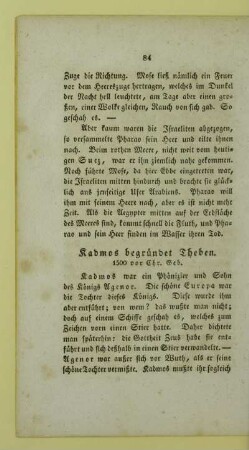 84
Zuge die Richtung. Mose ließ nämlich ein Feuer
vor dem Heereszuge hertragen, welches im Dunkel
der Nacht hell leuchtete, am Tage aber einen gro-
ßen, einer Wolke gleichen, Rauch von sich gab. So
geschah es. —
Aber kaum waren die Israeliten abgezogen,
so versammelte Pharao sein Heer und eilte ihnen
nach. Beim rothen Meere, nicht weit vom heutigen
Suez, war er ihn ziemlich nahe gekommen.
Noch führte Mose, da hier Ebbe eingetreten war,
die Israeliten mitten hindurch und brachte sie glücklich
ans jenseitige Ufer Arabiens. Pharao will
ihm mit seinem Heer nach. Aber es ist nicht mehr
Zeit. Als die Aegypter mitten auf der Erdfläche
des Meeres sind, kommt schnell die Fluth, und Pha-
rao und sein Heer finden im Wasser ihren Tod.
Kadmos begründet Theben.
1500 vor Chr. Geb.
Kadmos war ein Phönizier und Sohn
des Königs Agenor. Die schöne Europa war
die Tochter dieses Königs. Diese wurde ihm
aber entführt; von wem? das wußte man nicht;
doch auf einem Schiffe geschah es, welches zum
Zeichen vorn einen Stier hatte. Daher dichtete
man späterhin: die Gottheit Zeus habe sie ent-
führt und sich deßhalb in einen Stier verwandelt. —
Agenor war außer sich vor Wuth, als er seine
schöne Tochter vermißte. Kadmos mußte ihr sogleich